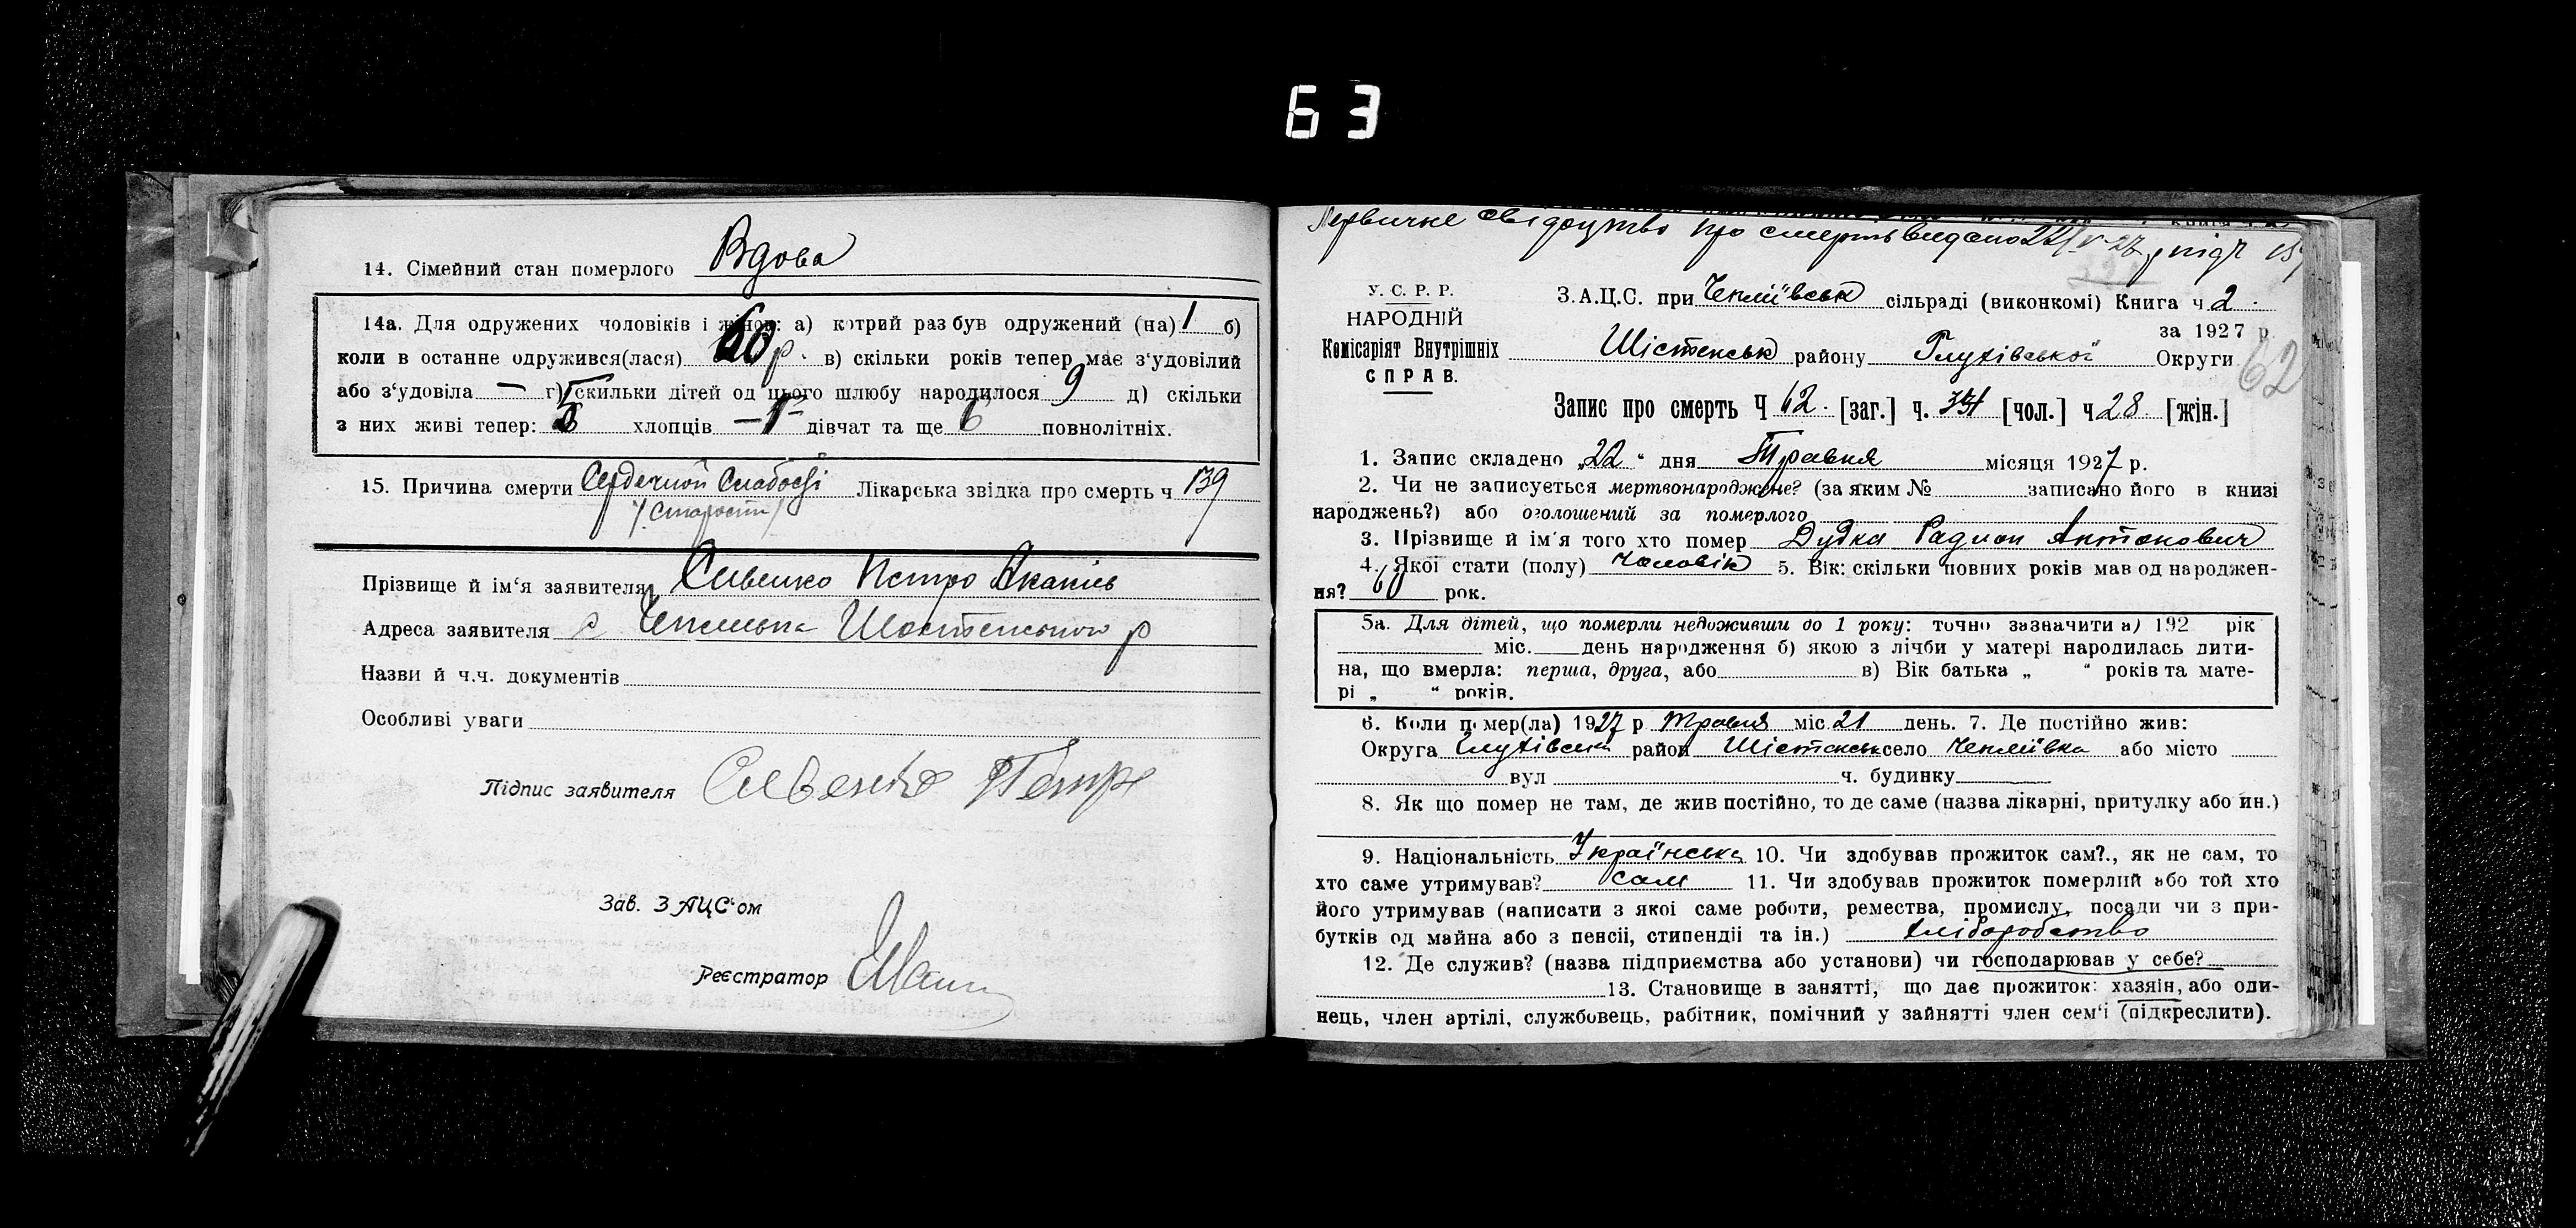 63
14. Сімейний стан померлого Вдова
14а. Для одружених чоловіків і жінок: а) котрий раз був одружений (на) 1 б)
коли в останне одружився(лася) 60 р. в) скільки років тепер має з'удовілий
або з'удовіла — г) скильки дітей од цього шлюбу народилося 9 д) скільки
з них живі тепер: 5 хлопців — 1 — дівчат та ще 6 повнолітніх.
15. Причина смерти Сердечной Слабості Лікарська звідка про смерть ч 139
/Старости/
Прізвище й ім'я заявителя Сивенко Петро
Адреса заявителя с Шостенського р
Назви й ч.ч. документів
Особливі уваги
Підпис заявителя Сивенко Петр
Зав. ЗАЦС'ом
Реєстратор
Первичне свідоцтво про смерть видано 22/V-27 р під ч 139
У. С. Р. Р.
НАРОДНІЙ
Комісаріят Внутрішніх
СПРАВ.
З.А.Ц.С. при Чепліївськ сільраді (виконкомі) Книга ч 2.
за 1927 р.
Шістенськ району Глухівської Округи
62
Запис про смерть Ч 62. [заг.] ч. 34 [чол.] ч 28 [жін.]
1. Запис складено „22" дня Травня місяця 1927 р.
2. Чи не записуеться мертвонароджене? (за яким № записано його в книзі
народжень?) або оголошений за померлого
3. Прізвище й ім'я того хто помер Дудка Радион Антонович
4. Якої стати (полу) Чоловік 5. Вік: скільки повних років мав од народжен-
ня? 60 рок.
5а. Для дітей, що померли недоживши до 1 року: точно зазначити а) 192 рік
міс. день народження б) якою з лічби у матері народилась дити-
на, що вмерла: перша, друга, або в) Вік батька „ " років та мате-
рі „ " років.
6. Коли помер(ла) 1927 р Травня міс. 21 день. 7. Де постійно жив:
Округа Глухівська район Шістенськ село Чепліївка або місто
вул ч. будинку
8. Як що помер не там, де жив постійно, то де саме (назва лікарні, притулку або ин.)
9. Національність Українська 10. Чи здобував прожиток сам?., як не сам, то
хто саме утримував? сам 11. Чи здобував прожиток померлий або той хто
його утримував (написати з якоі саме роботи, ремества, промислу, посади чи з при-
бутків од майна або з пенсіі, стипендіі та ін.) хліборобство
12. Де служив? (назва підприемства або установи) чи господарював у себе?
13. Становище в занятті, що дае прожиток: хазяін, або оди-
нець, член артілі, службовець, рабітник, помічний у зайнятті член сем'і (підкреслити).